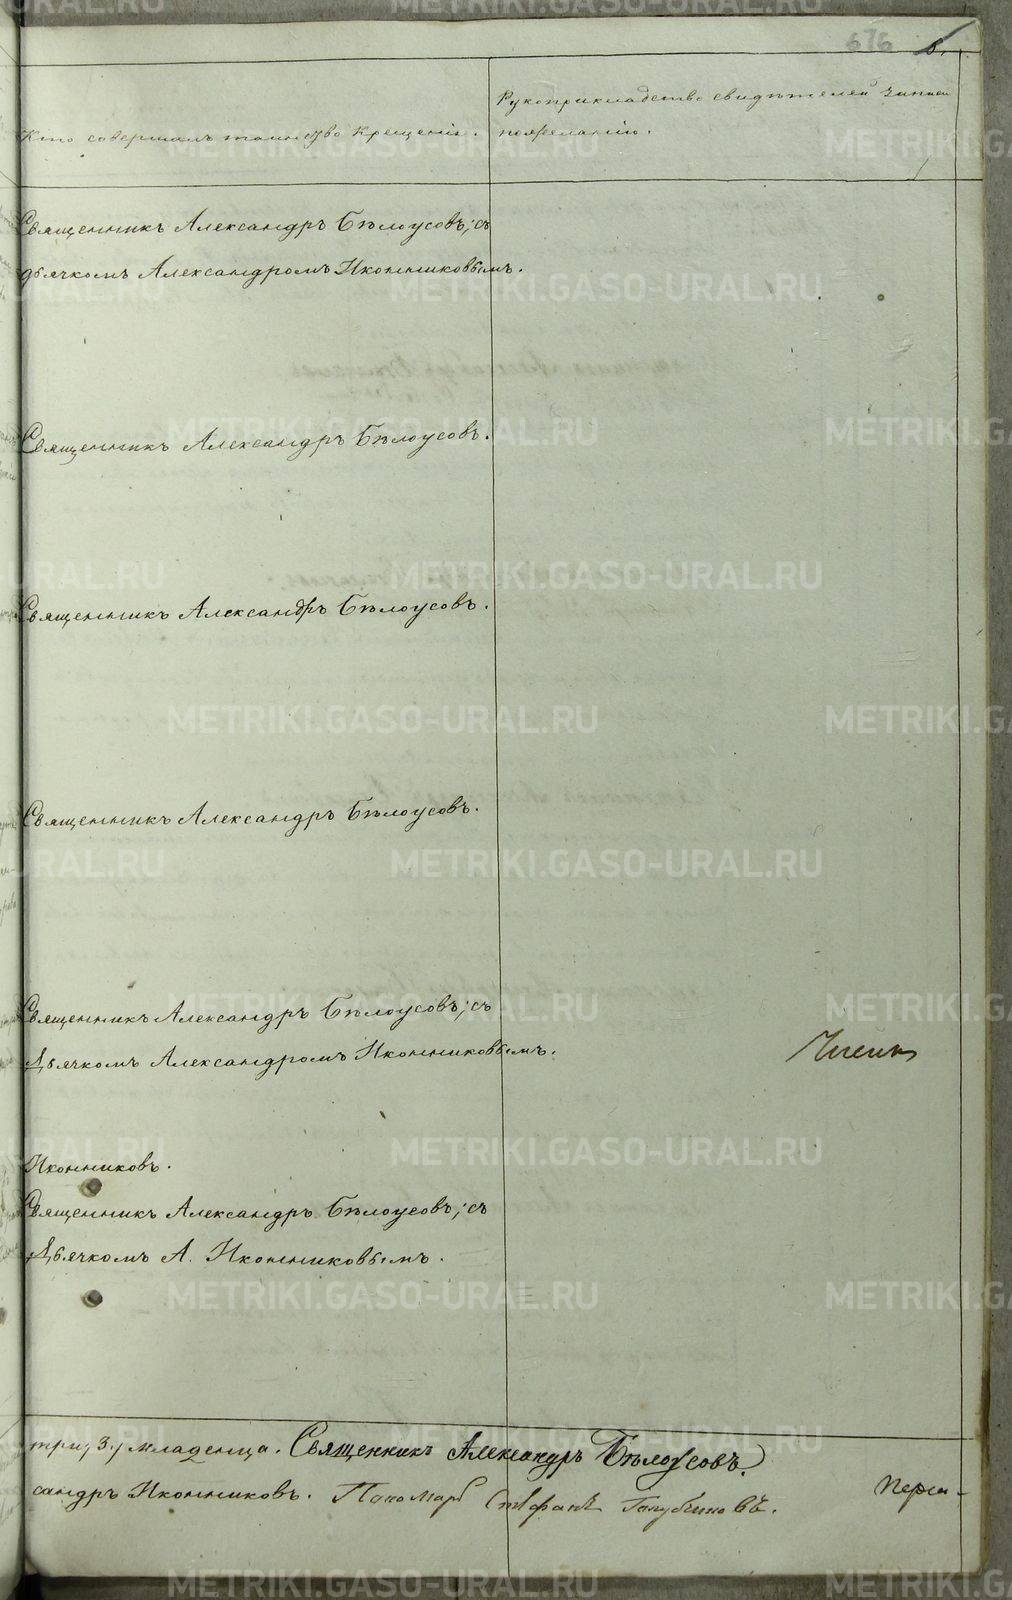 676
Кто совершалъ таинство Крещенія.
Рукоприкладство свидѣтелей записи
по желанію.
Священникъ Александръ Бѣлоусовъ; съ
дьячкомъ Александромъ Иконниковымъ.
Священникъ Александръ Бѣлоусовъ.
Священникъ Александръ Бѣлоусовъ.
Священникъ Александръ Бѣлоусовъ.
Священникъ Александръ Бѣлоусовъ; съ
Дьячкомъ Александромъ Иконниковымъ.
Иконниковъ.
Священникъ Александръ Бѣлоусовъ; съ
Дьячкомъ А. Иконниковымъ.
три, 3. младенца. Священникъ Александръ Бѣлоусовъ.
сандръ Иконниковъ. Пономарь Стефанъ
METRIKI.GASO-URAL.RU